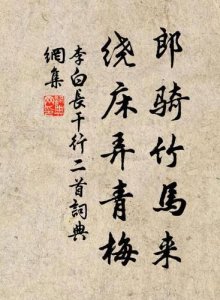 郎骑竹馬来
绕床弄青梅
李白長干行二首詞典
網集